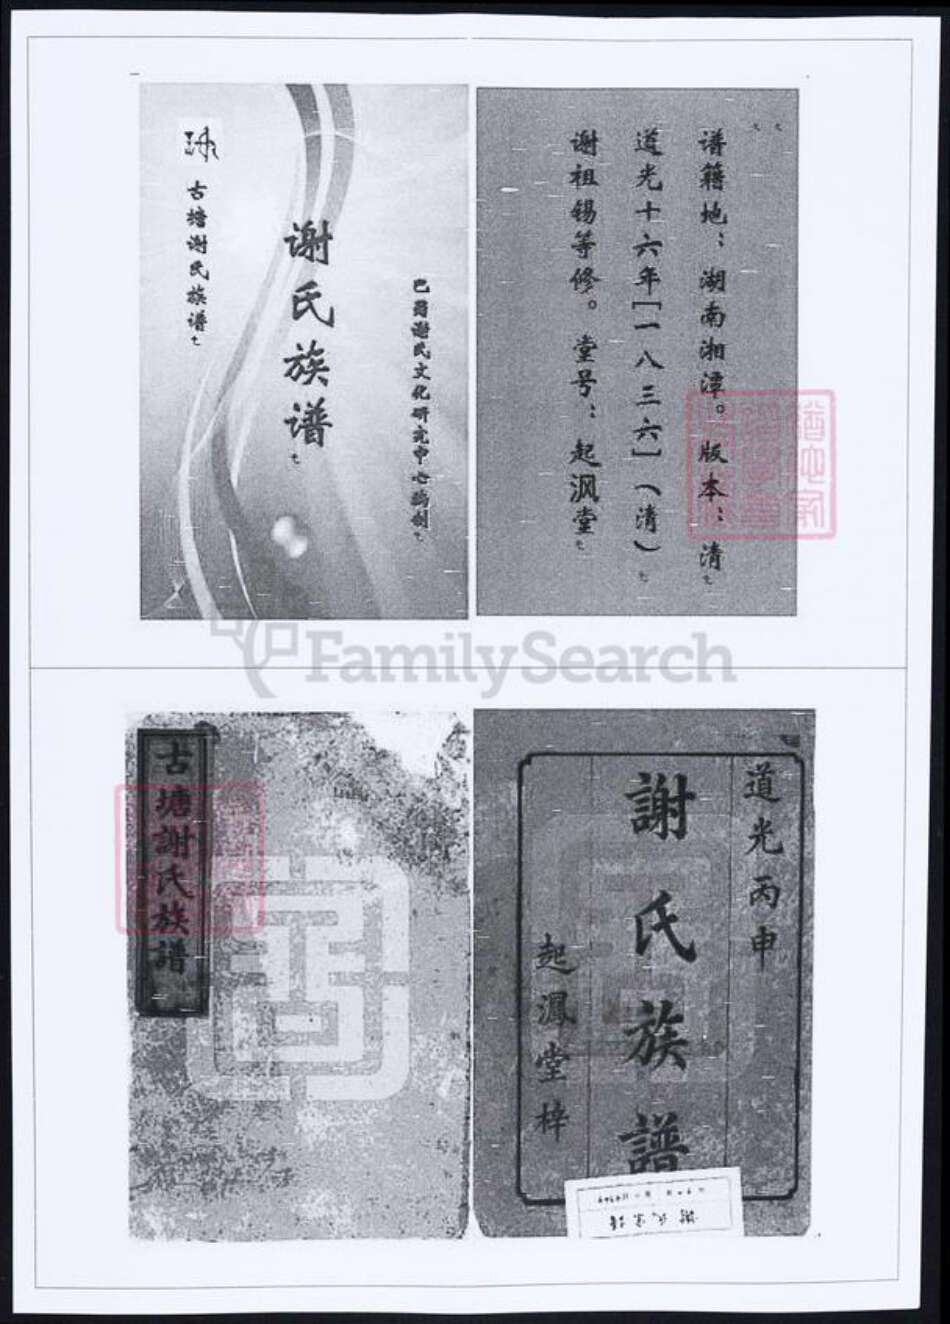 古塘谢氏族谱
谢氏族谱
巴蜀谢氏文化研究中心编制
谱籍地：湖南湘潭。版本：清
道光十六年[一八三六]（清）
谢祖锡等修。堂号：起沨堂
FamilySearch
古塘謝氏族譜
道光丙申
謝氏族譜
起渢堂梓